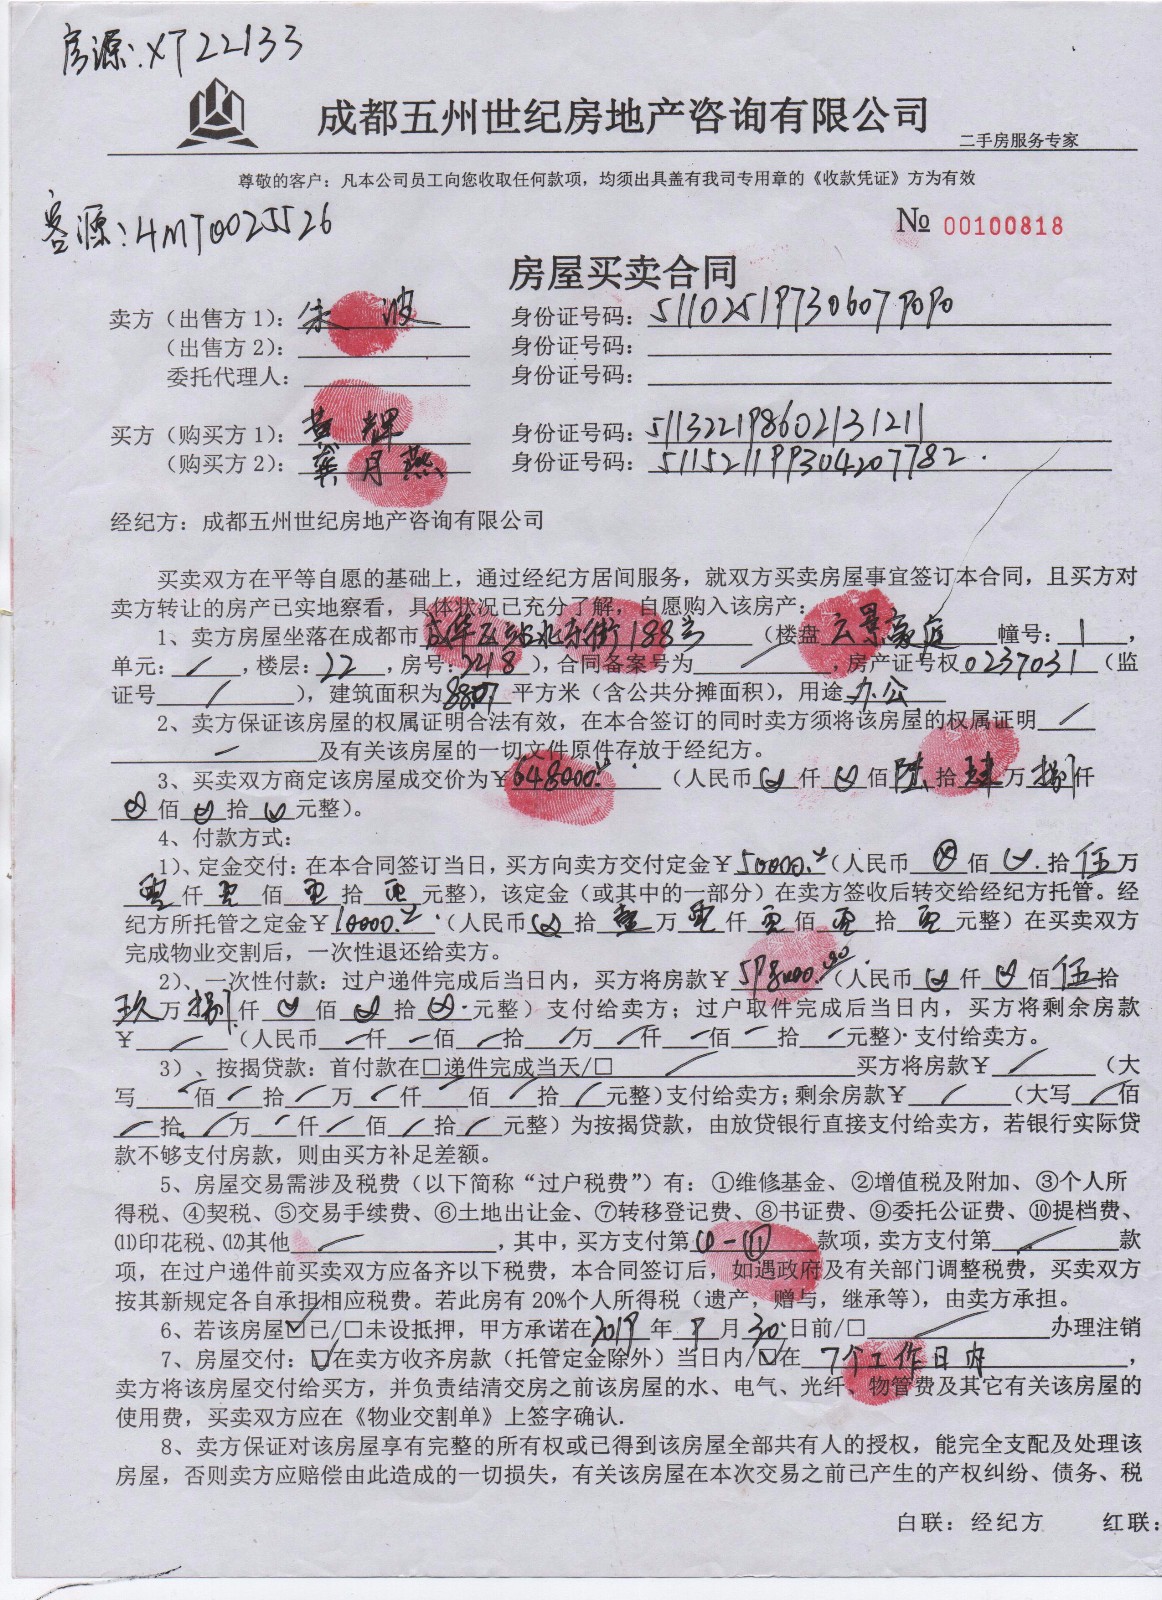 房源:XT22133
成都五州世纪房地产咨询有限公司
二手房服务专家
尊敬的客户：凡本公司员工向您收取任何款项，均须出具盖有我司专用章的《收款凭证》方为有效
客源:HMT0025526
№ 00100818
房屋买卖合同
卖方（出售方1）：朱波 身份证号码：511025197306079090
（出售方2）： 身份证号码：
委托代理人： 身份证号码：
买方（购买方1）：黄辉 身份证号码：511322198602131211
（购买方2）：龚月燕 身份证号码：511521199304207782.
经纪方：成都五州世纪房地产咨询有限公司
买卖双方在平等自愿的基础上，通过经纪方居间服务，就双方买卖房屋事宜签订本合同，且买方对
卖方转让的房产已实地察看，具体状况已充分了解，自愿购入该房产：
1、卖方房屋坐落在成都市成华区 北东街188号（楼盘 豪庭 幢号：1，
单元：/，楼层：22，房号：2218），合同备案号为/，房产证号权0237031（监
证号/），建筑面积为 平方米（含公共分摊面积），用途办公
2、卖方保证该房屋的权属证明合法有效，在本合签订的同时卖方须将该房屋的权属证明/
一及有关该房屋的一切文件原件存放于经纪方。
3、买卖双方商定该房屋成交价为￥648000.（人民币 仟 佰陆拾肆万捌仟
佰 拾 元整）。
4、付款方式：
1）、定金交付：在本合同签订当日，买方向卖方交付定金￥50000.（人民币 佰 拾伍万
零仟零佰零拾零元整），该定金（或其中的一部分）在卖方签收后转交给经纪方托管。经
纪方所托管之定金￥10000.（人民币 拾壹万零仟零佰零拾零元整）在买卖双方
完成物业交割后，一次性退还给卖方。
2）、一次性付款：过户递件完成后当日内，买方将房款￥598000.00（人民币 仟 佰伍拾
玖万捌仟 佰 拾 元整）支付给卖方；过户取件完成后当日内，买方将剩余房款
￥/（人民币/仟/佰/拾/万/仟/佰/拾/元整）支付给卖方。
3）、按揭贷款：首付款在□递件完成当天/□/买方将房款￥/（大
写/佰/拾/万/仟/佰/拾/元整）支付给卖方；剩余房款￥/（大写/佰
/拾/万/仟/佰/拾/元整）为按揭贷款，由放贷银行直接支付给卖方，若银行实际贷
款不够支付房款，则由买方补足差额。
5、房屋交易需涉及税费（以下简称“过户税费”）有：①维修基金、②增值税及附加、③个人所
得税、④契税、⑤交易手续费、⑥土地出让金、⑦转移登记费、⑧书证费、⑨委托公证费、⑩提档费、
⑾印花税、⑿其他/，其中，买方支付第①-⑪款项，卖方支付第/款
项，在过户递件前买卖双方应备齐以下税费，本合同签订后，如遇政府及有关部门调整税费，买卖双方
按其新规定各自承担相应税费。若此房有20%个人所得税（遗产，赠与，继承等），由卖方承担。
6、若该房屋☑已/□未设抵押，甲方承诺在2019年9月30日前/□/办理注销
7、房屋交付：☑在卖方收齐房款（托管定金除外）当日内/☑在7个工作日内，
卖方将该房屋交付给买方，并负责结清交房之前该房屋的水、电气、光纤、物管费及其它有关该房屋的
使用费，买卖双方应在《物业交割单》上签字确认.
8、卖方保证对该房屋享有完整的所有权或已得到该房屋全部共有人的授权，能完全支配及处理该
房屋，否则卖方应赔偿由此造成的一切损失，有关该房屋在本次交易之前已产生的产权纠纷、债务、税
白联：经纪方 红联：